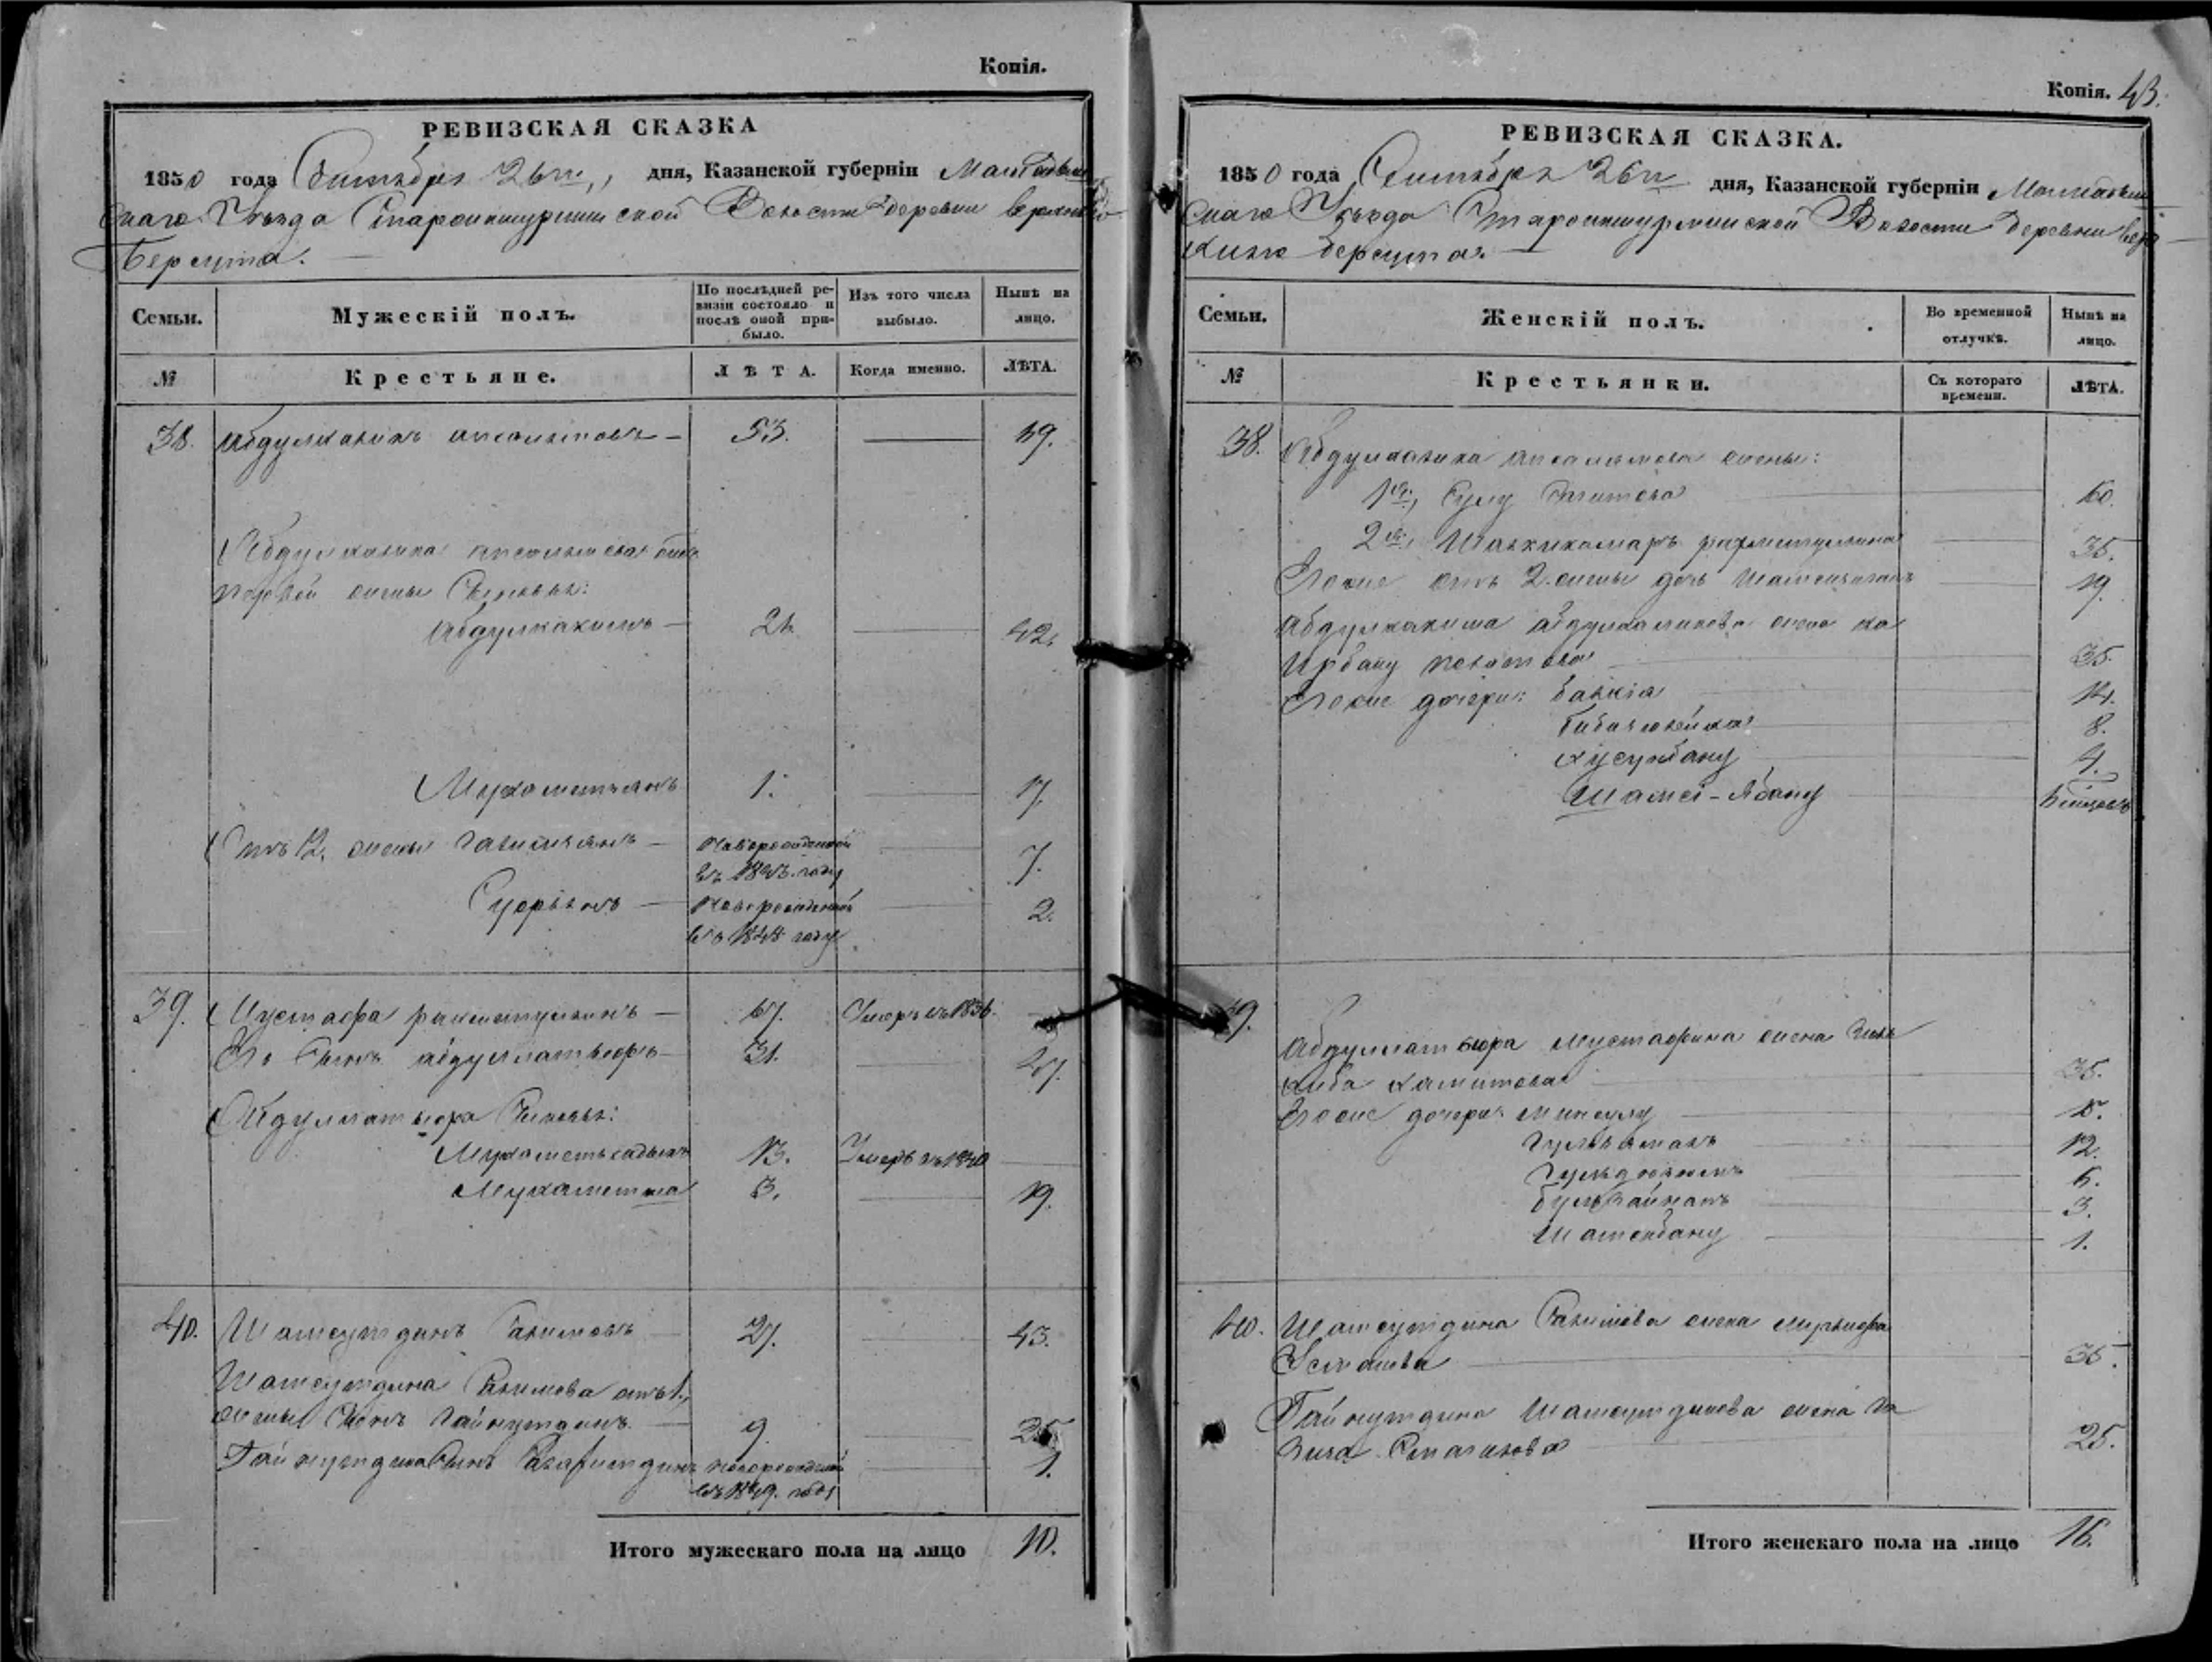 Копія.
РЕВИЗСКАЯ СКАЗКА
1850 года Сентября 26го, дня, Казанской губерніи Мамадыш
скаго Уѣзда Староикшурминской Волости деревни верхняго
Берсута.
Семьи.
Мужескій полъ.
По послѣдней ре-
визіи состояло и
послѣ оной при-
было.
Изъ того числа
выбыло.
Нынѣ на
лицо.
№
Крестьяне.
ЛѢТА.
Когда именно.
ЛѢТА.
38. Абдулхаликъ апсалямовъ — 53. 69.
Абдулхалика апсалямова отъ
первой жены Сыновья:
Абдулхакимъ — 26. 42.
Мухаметзянъ 1. 17.
Отъ 2. жены — Новорожденной 7.
въ 1843. году
— Новорожденный 2.
въ 1848 году
39. Мустафа рахматуллинъ — 67. Умеръ въ 1836.
Его Сынъ абдуллатыфъ — 31. 47.
Абдуллатыфа Сыновья:
Мухаметьсадыкъ 13. Умеръ въ 1840
Мухаметша 3. 19.
40. Шамсутдинъ Салимовъ 27. 43.
Шамсутдина Салимова отъ 1.
жены Сынъ Гайнутдинъ. — 9. 25
Гайнутдина Сынъ новорожденный 1.
въ 1849. году
Итого мужескаго пола на лицо 10.
Копія. 43.
РЕВИЗСКАЯ СКАЗКА.
1850 года Сентября 26го дня, Казанской губерніи Мамадыш
скаго Уѣзда Староикшурминской Волости деревни верх
няго берсута.
Семьи.
Женскій полъ.
Во временной
отлучкѣ.
Нынѣ на
лицо.
№
Крестьянки.
Съ котораго
времени.
ЛѢТА.
38. Абдулхалика апсалямова жены:
1я, Сулу 60.
2я, рахматуллина 35.
Ево же отъ 2. жены дочь 19.
Абдулхакима абдулхаликова жена ха
ирбану 35.
Ево же дочери: 14.
8.
хусунбану 4.
Шамсі-Ябану
39.
Абдуллатыфа мустафина жена
хиба хамитова 35.
Ево же дочери: минсулу 15.
12.
6.
3.
Шамсибану 1.
40. Шамсутдина Салимова жена
35.
Гайнутдина Шамсутдинова жена
25.
Итого женскаго пола на лицо 16.